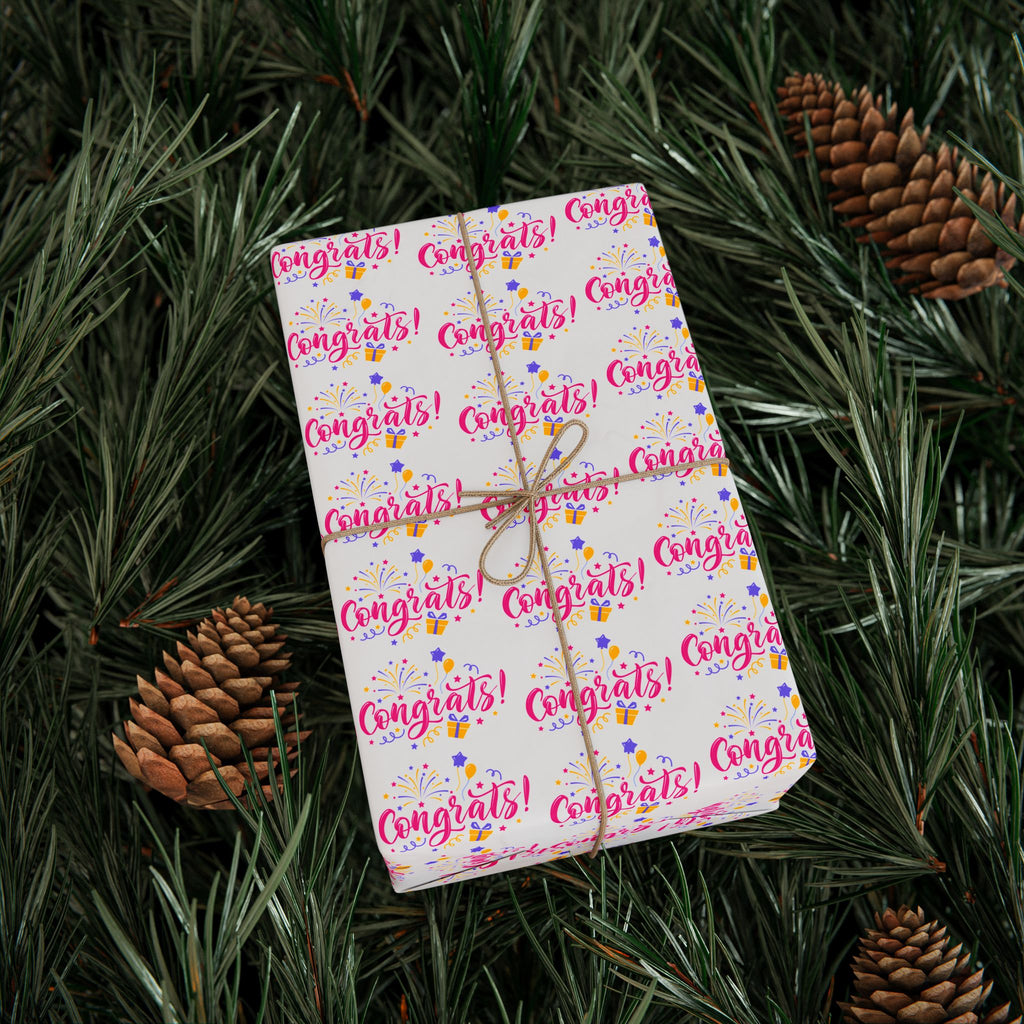 Congrats! Congrats! Congra
Congrats! Congrats! Congra
Congrats! Congrats! Congra
Congrats! Congrats! Congra
Congrats! Congrats! Congra
Congrats! Congrats! Congra
Congrats! Congrats! Congra